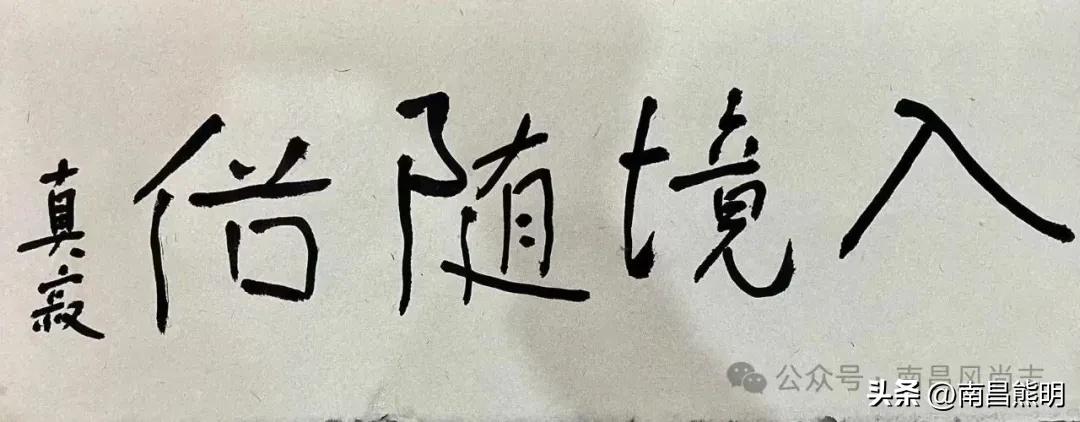 入境随俗
真寂
公众号 · 南昌风尚志
头条 @南昌熊明